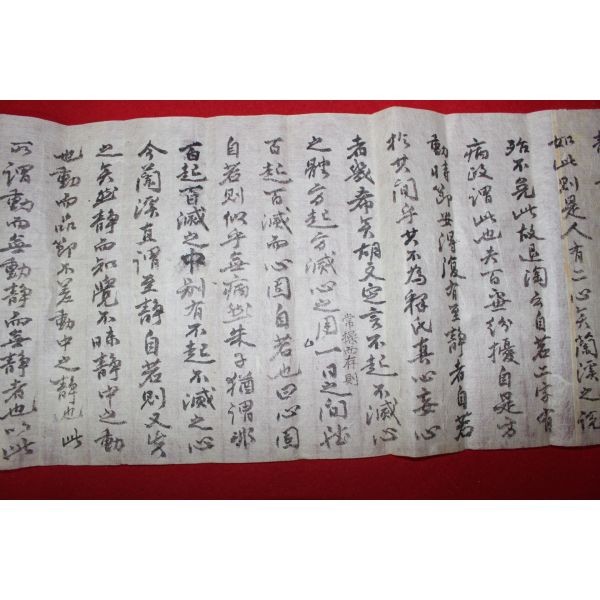 如此則是人有二心矣蘭溪之說
殆不免此故退陶云自若二字有
病政謂此也夫百慮紛擾自是方
動時節安得復有至靜者自若
於其間乎其不為釋氏真心妄心
者幾希矣胡文定言不起不滅心
之體方起方滅心之用常操而存則一日之間雖
百起百滅而心固自若也曰心固
自若則似乎無病然朱子猶謂非
百起百滅之中別有不起不滅之心
今蘭溪直謂至靜自若則又失
之矣然靜而知覺不昧靜中之動
也動而品節不差動中之靜也此
所謂動而無動靜而無靜者也以此